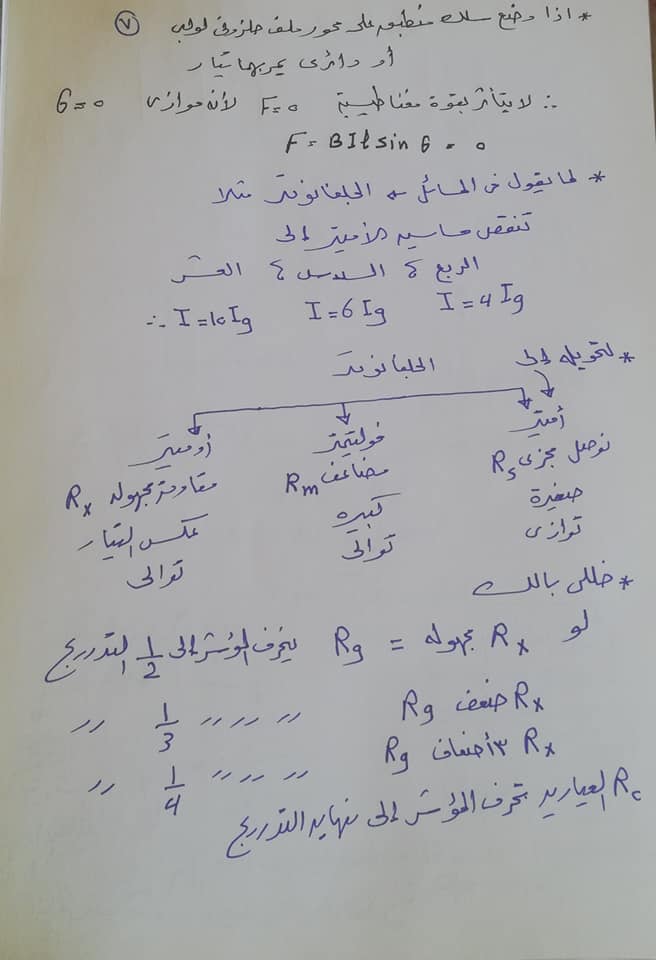 * اذا وضع سلك منطبق على محور ملف حلزونى لولبى ٧
أو دائرى يمر بها تيار
∴ لا يتأثر بقوة مغناطيسية F=0 لأنه موازى θ=0
F = BIl sin θ = 0
* لما يقول فى المسائل الجلفانومتر مثلا
تنقص حساسية الأميتر إلى
الربع ، السدس ، العشر
I=4Ig I=6Ig ∴ I=10Ig
* لتحويله إلى الجلفانومتر
أميتر فولتيمتر أوميتر
نوصل مجزئ Rs مضاعف Rm مقاومة مجهولة Rx
صغيرة كبيرة عكس التيار
توازى توالى توالى
* خللى بالك
لو Rx مجهولة = Rg ينحرف المؤشر إلى 1/2 التدريج
Rx ضعف Rg 〃 〃 〃 1/3 〃
Rx ٣ أضعاف Rg 〃 〃 〃 1/4 〃
Rc العيارية تحرف المؤشر إلى نهاية التدريج